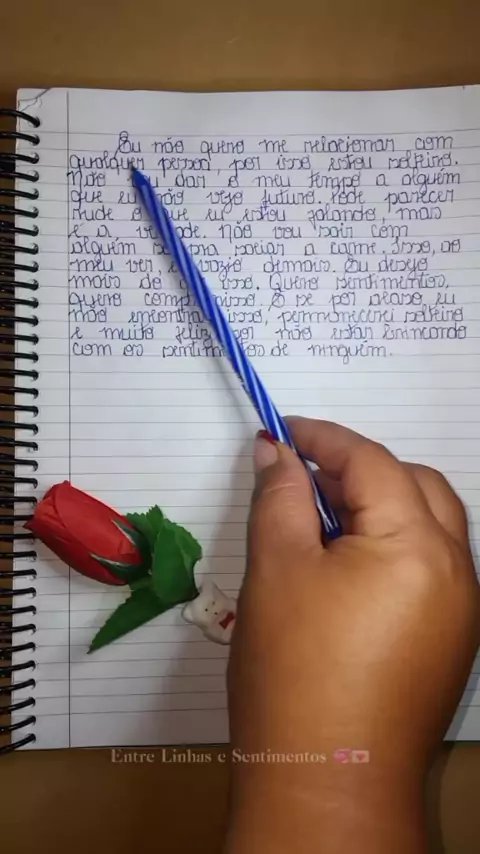 Eu não quero me relacionar com
qualquer pessoa, por isso estou solteiro.
Não dar o meu tempo a alguém
que eu não vejo futuro. Pode parecer
rude o que eu estou falando, mas
é a verdade. Não vou sair com
alguém só pra saciar a carne. Isso, ao
meu ver, é vazio demais. Eu desejo
mais do isso. Quero sentimentos,
quero compromisso. E se por acaso, eu
não encontrar isso, permanecerei solteiro
e muito feliz por não estar brincando
com os sentimentos de ninguém.
Entre Linhas e Sentimentos